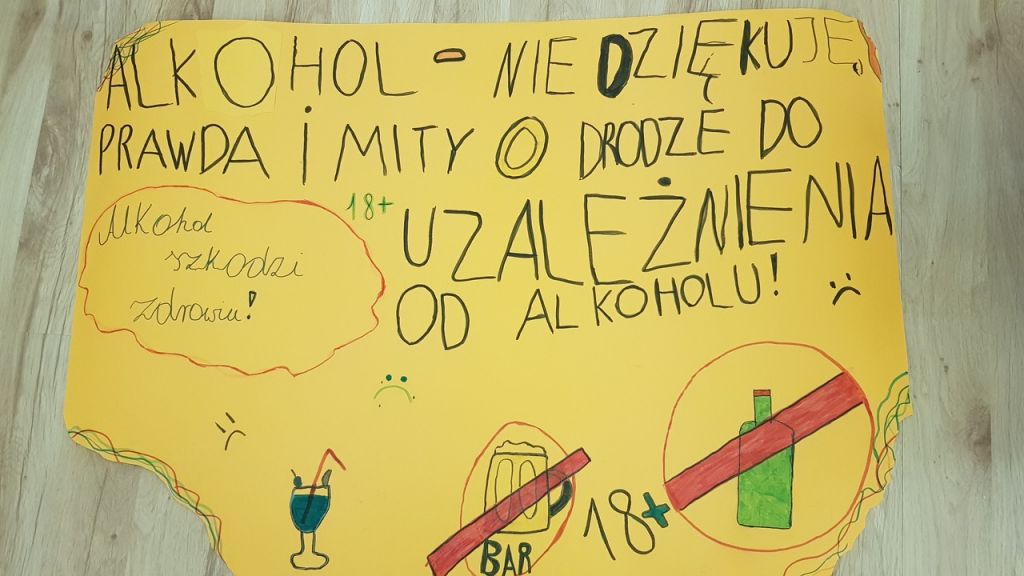 ALKOHOL - NIE DZIĘKUJĘ,
PRAWDA i MITY O DRODZE DO
UZALEŻNIENIA
OD ALKOHOLU!
18+
Alkohol
szkodzi
zdrowiu!
BAR
18+